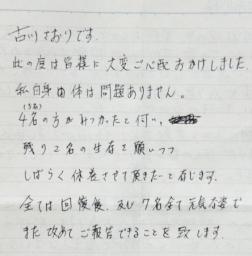 古川さおりです。
此の度は皆様に大変ご心配おかけしました。
私自身、身体は問題ありません。
(うち)
4名の方がみつかったと伺い、
残り2名の生存を願いつつ
しばらく休養させて頂きたいと存じます。
全ては回復後、及び7名全て元気な姿で
また改めてご報告できることを致します。